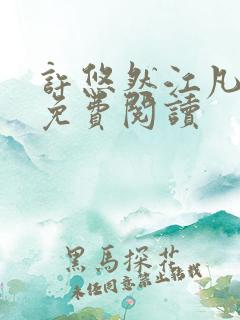 許悠然江凡
免費閱讀
黑馬探花
未任同意禁止轉載